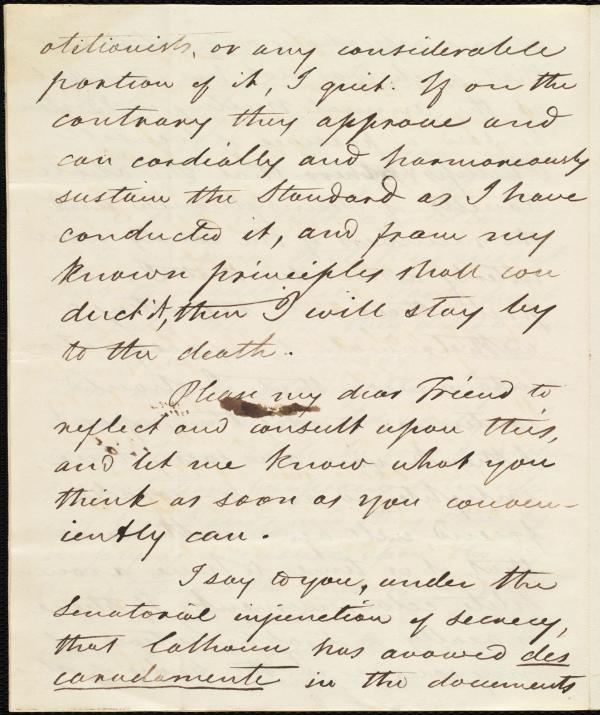 olitionists, or any considerable
portion of it, I quit. If on the
contrary they approve and
can cordially and harmoneously
sustain the Standard as I have
conducted it, and from my
known principles shall con
duct it, then I will stay by
to the death.
Please my dear Friend to
reflect and consult upon this,
and let me know what you
think as soon as you conven-
iently can.
I say to you, under the
Senatorial injunction of secrecy,
that Calhoun has avowed des
caradamente in the documents